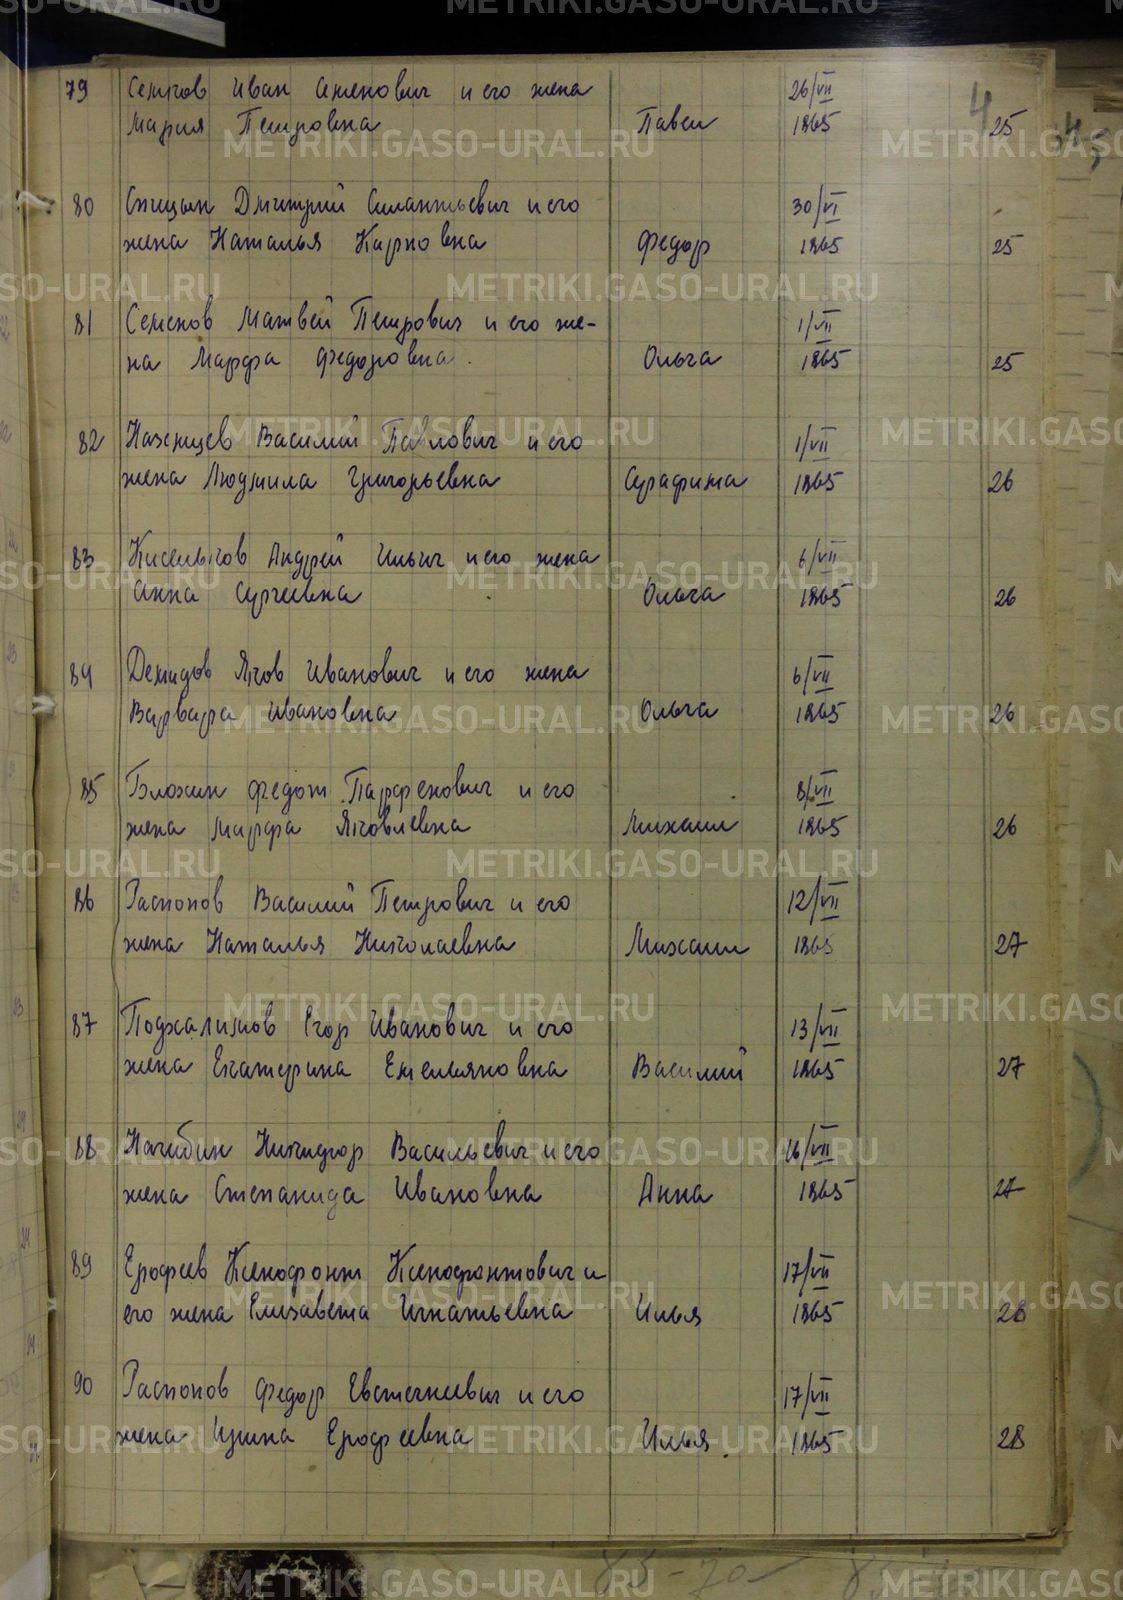 79 Семков Иван Семенович и его жена 26/VII
Мария Петровна Павел 1865 25
80 Спицын Дмитрий Силантьевич и его 30/VI
жена Наталья Карповна Федор 1865 25
81 Семенов Матвей Петрович и его же- 1/VII
на Марфа Федоровна. Ольга 1865 25
82 Василий Павлович и его 1/VII
жена Людмила Григорьевна Серафима 1865 26
83 Андрей Ильич и его жена 6/VII
Анна Сергеевна Ольга 1865 26
84 Демидов Яков Иванович и его жена 6/VII
Варвара Ивановна Ольга 1865 26
85 Блохин Федот Парфенович и его 8/VII
жена Марфа Яковлевна Михаил 1865 26
86 Распопов Василий Петрович и его 12/VII
жена Наталья Николаевна Михаил 1865 27
87 Подкалимов Егор Иванович и его 13/VII
жена Екатерина Емельяновна Василий 1865 27
88 Нагибин Никифор Васильевич и его 16/VII
жена Степанида Ивановна Анна 1865 27
89 Ерофеев Ксенофонт Ксенофонтович и 17/VII
его жена Елизавета Игнатьевна Илья 1865 28
90 Распопов Федор Евстигнеевич и его 17/VII
жена Ирина Ерофеевна Илья 1865 28
METRIKI.GASO-URAL.RU